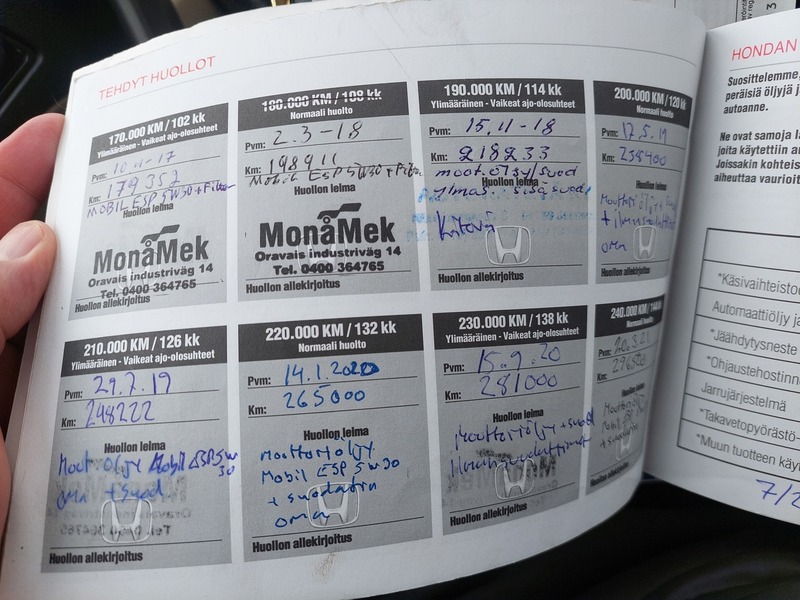 TEHDYT HUOLLOT
170.000 KM / 102 kk
Ylimääräinen - Vaikeat ajo-olosuhteet
Pvm: 10-11-17
Km: 179352
MOBIL ESP 5W30 + Filter
Huollon leima
MonåMek
Oravais industriväg 14
Tel. 0400 364765
Huollon allekirjoitus
180.000 KM / 108 kk
Normaali huolto
Pvm: 2.3-18
Km: 198911
MOBIL ESP 5W30 + Filter
Huollon leima
MonåMek
Oravais industriväg 14
Tel. 0400 364765
Huollon allekirjoitus
190.000 KM / 114 kk
Ylimääräinen - Vaikeat ajo-olosuhteet
Pvm: 15.11-18
Km: 218233
moot.öljy/suod
Huollon leima
ylmas. sisäsuod
Huollon allekirjoitus
200.000 KM / 120 kk
Normaali huolto
Pvm: 17.5.19
Km: 238400
Huollon leima
Moottoriöljy
+ ilmansuodatin
oma
Huollon allekirjoitus
210.000 KM / 126 kk
Ylimääräinen - Vaikeat ajo-olosuhteet
Pvm: 29.7.19
Km: 248222
Huollon leima
Moot öljy Mobil ESP 5W
30
oma + suod
Huollon allekirjoitus
220.000 KM / 132 kk
Normaali huolto
Pvm: 14.1.2020
Km: 265000
Huollon leima
Moottoriöljy
Mobil ESP 5W30
+ suodatin
oma
Huollon allekirjoitus
230.000 KM / 138 kk
Ylimääräinen - Vaikeat ajo-olosuhteet
Pvm: 15.9.20
Km: 281000
Huollon leima
Moottoriöljy + suod
Ilmansuodattimet
Huollon allekirjoitus
240.000 KM / 144 kk
Normaali huolto
Pvm: 20.3.21
Km: 296500
Huollon leima
Moottoriöljy
+ suodatin
Huollon allekirjoitus
HONDAN
Suosittelemme,
peräisiä öljyjä ja
autoanne.
Ne ovat samoja
joita käytettiin
Joissakin kohteis
aiheuttaa vaurioit
*Käsivaihteisto
Automaattiöljy ja
*Jäähdytysneste
*Ohjaustehostin
Jarrujärjestelmä
*Takavetopyörästö-
*Muun tuotteen käy